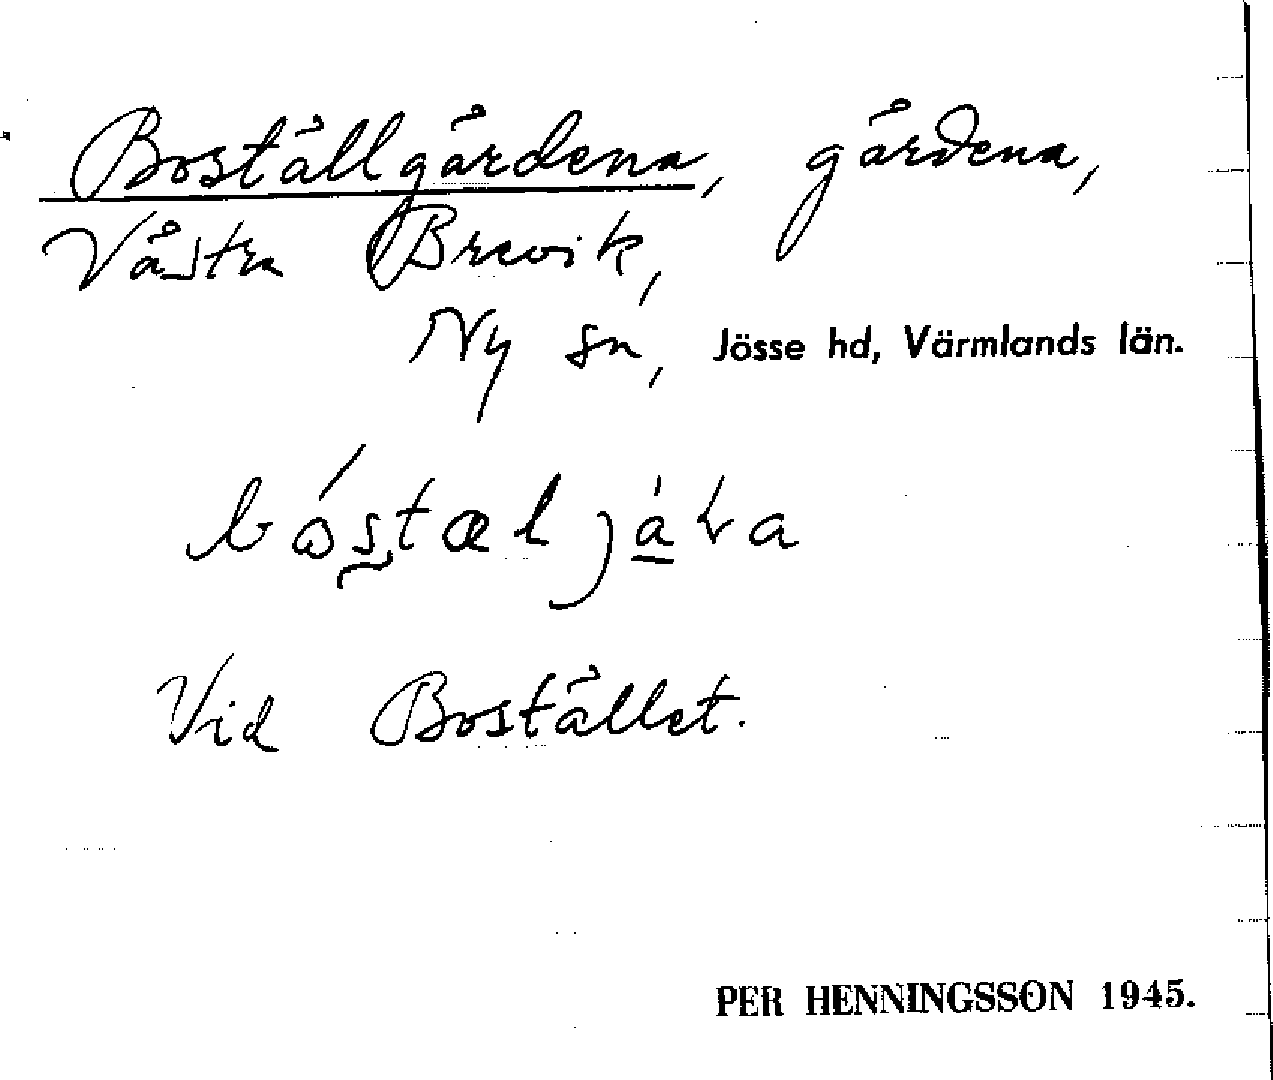 Boställgärdena, gärdena,
Västra Brevik,
Ny sn, Jösse hd, Värmlands län.
Vid Bostället.
PER HENNINGSSON 1945.